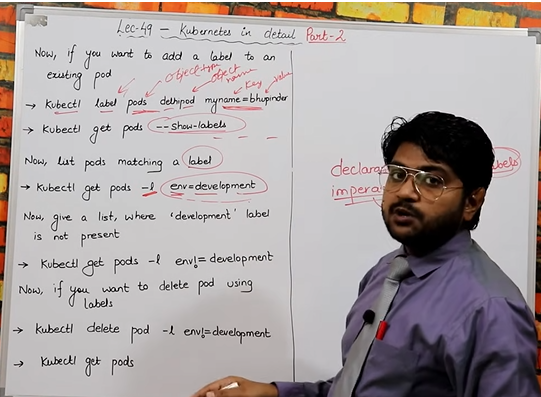 Lec-49 - Kubernetes in detail Part-2
Now, if you want to add a label to an
existing pod
object-type
object name
key
value
→ Kubectl label pods delhipod myname=bhupinder
→ Kubectl get pods --show-labels
Now, list pods matching a label
→ Kubectl get pods -l env=development
Now, give a list, where 'development' label
is not present
→ Kubectl get pods -l env!=development
Now, if you want to delete pod using
labels
→ Kubectl delete pod -l env!=development
→ Kubectl get pods
declara
impera
labels